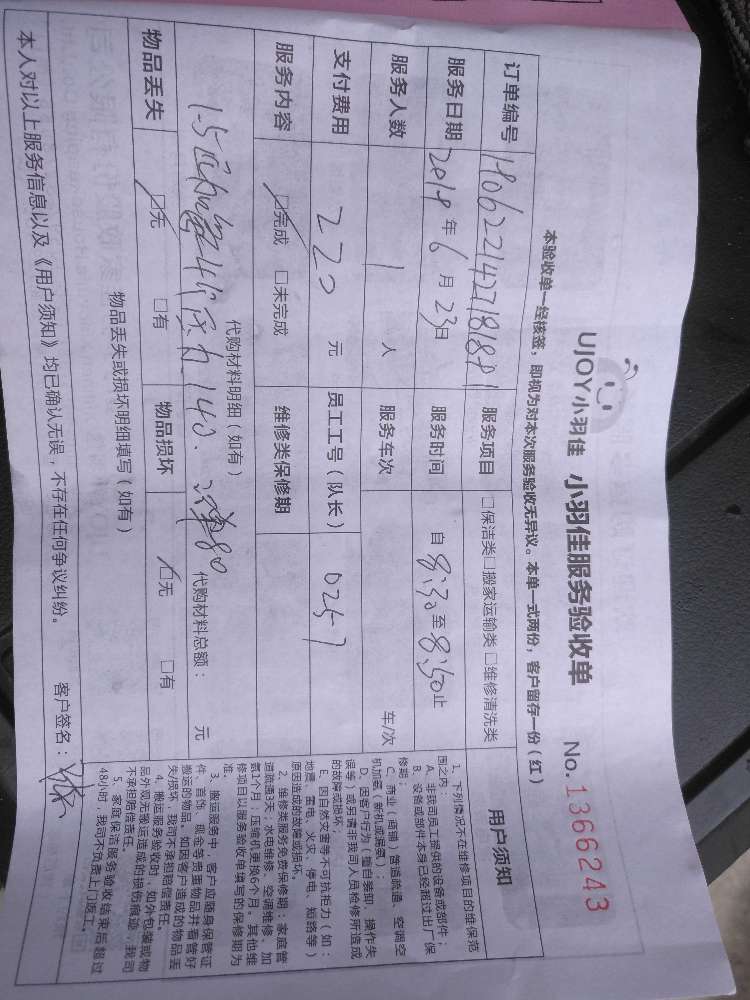 UJOY小羽佳 小羽佳服务验收单 No.1366243
本验收单一经核签，即视为对本次服务验收无异议。本单一式两份，客户留存一份（红）
订单编号 服务项目 □保洁类□搬家运输类 □维修清洗类
服务日期 2018年6月23日 服务时间 自8:30至8:50止
服务人数 1 人 服务车次 车/次
支付费用 220 元 员工工号（队长） 0257
服务内容 ☑完成 □未完成 维修类保修期
代购材料明细（如有）
代购材料总额： 元
物品丢失 ☑无 □有 物品损坏 ☑无 □有
物品丢失或损坏明细填写（如有）
本人对以上服务信息以及《用户须知》均已确认无误，不存在任何争议纠纷。 客户签名：
用户须知
1、下列情况不在维修项目的维保范
围之内：
A、非我司员工提供的设备或部件；
B、设备或部件本身已经超过出厂保
修期；
C、商业（商铺）管道疏通、空调空
机加氨（新机或漏氨）；
D、因客户行为（擅自装卸、操作失
误等）或另请非我司人员检修所造成
的故障或损坏；
E、因自然灾害等不可抗拒力（如：
地震、雷电、火灾、停电、短路等）
原因造成的故障或损坏。
2、维修类服务免费保修期：家庭管
道疏通3天；水电维修、空调维修、加
氨1个月，压缩机更换6个月。其他维
修项目以服务验收单填写的保修期为
准。
3、搬运服务中，客户应随身保管证
件、首饰、现金等贵重物品并看管好
搬运的物品。如因客户造成的物品丢
失/损坏，我司不承担赔偿责任。
4、搬运服务验收时，如外包装或物
品外观无搬运造成的损伤痕迹，我司
不承担赔偿责任。
5、家庭保洁服务验收结束后超过
48小时，我司不负责上门返工。